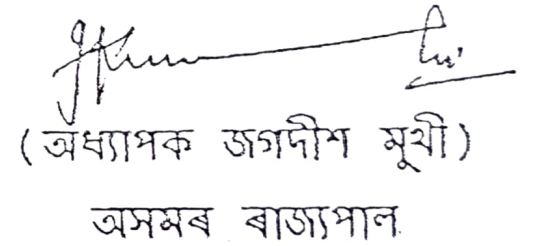 (অধ্যাপক জগদীশ মুখী)
অসমৰ ৰাজ্যপাল